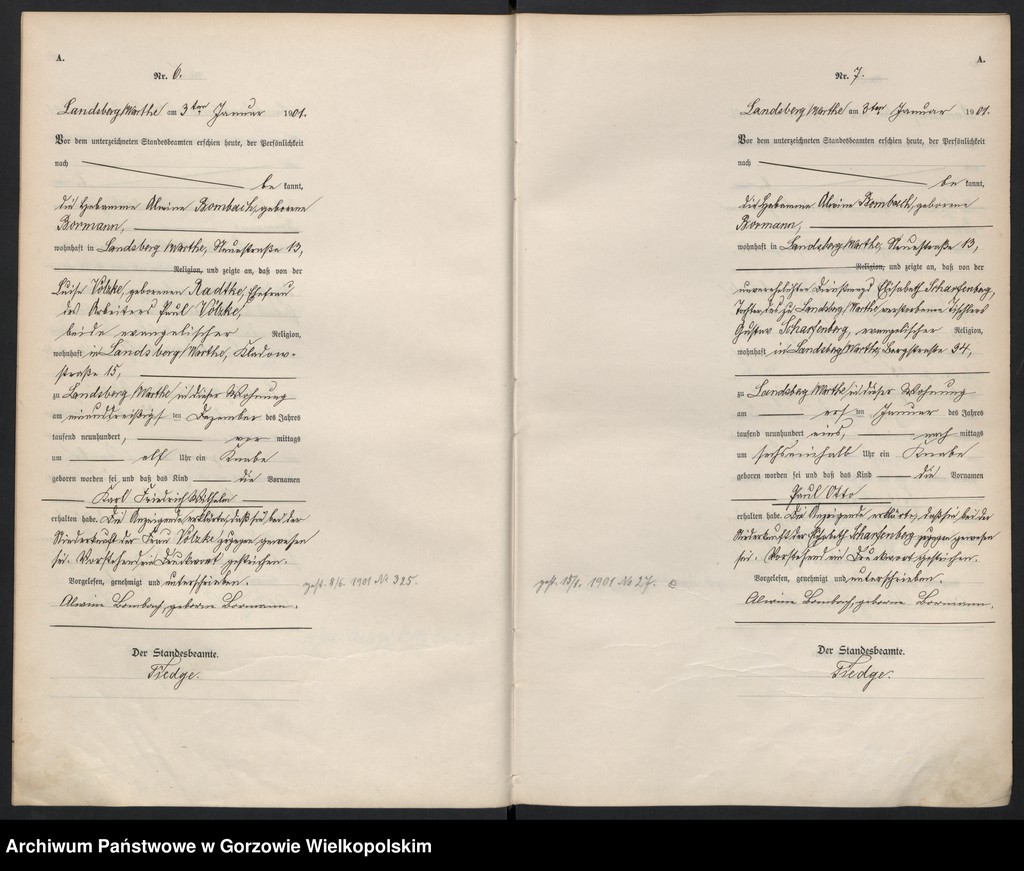 A.
Nr. 6.
Landsberg/Warthe am 3ten Januar 1901.
Vor dem unterzeichneten Standesbeamten erschien heute, der Persönlichkeit
nach
be kannt,
die Hebamme Alwine Bombach, geborene
Bormann,
wohnhaft in Landsberg/Warthe, Neuestraße 13,
Religion, und zeigte an, daß von der
Luise Völzke, geborenen Radtke, Ehefrau
des Arbeiters Paul Völzke,
beide evangelischer Religion,
wohnhaft in Landsberg/Warthe, Kladow-
straße 15,
zu Landsberg/Warthe in dieser Wohnung
am einunddreißigsten Dezember des Jahres
tausend neunhundert, vor mittags
um elf Uhr ein Knabe
geboren worden sei und daß das Kind die Vornamen
Karl Friedrich Wilhelm
erhalten habe. Die Anzeigende erklärte, daß sie bei der
Niederkunft der Frau Völzke zugegen gewesen
sei. Vorstehend ein Druckwort gestrichen.
Vorgelesen, genehmigt und unterschrieben.
Alwine Bombach, geborne Bormann.
gest. 8/6. 1901 No 325.
Der Standesbeamte.
Tiedge.
A.
Nr. 7.
Landsberg/Warthe am 3ten Januar 1901.
Vor dem unterzeichneten Standesbeamten erschien heute, der Persönlichkeit
nach
be kannt,
die Hebamme Alwine Bombach, geborene
Bormann,
wohnhaft in Landsberg/Warthe, Neuestraße 13,
Religion, und zeigte an, daß von der
unverehelichten Dienstmagd Elisabeth Scharfenberg,
Tochter des zu Landsberg/Warthe verstorbenen Tischlers
Gustav Scharfenberg, evangelischer Religion,
wohnhaft in Landsberg/Warthe, Bergstraße 34,
zu Landsberg/Warthe in dieser Wohnung
am ersten Januar des Jahres
tausend neunhundert eins, nach mittags
um sechseinhalb Uhr ein Knabe
geboren worden sei und daß das Kind die Vornamen
Paul Otto
erhalten habe. Die Anzeigende erklärte, daß sie bei der
Niederkunft der Elisabeth Scharfenberg zugegen gewesen
sei. Vorstehend ein Druckwort gestrichen.
Vorgelesen, genehmigt und unterschrieben.
Alwine Bombach, geborne Bormann.
gest. 15/1. 1901 No 27.
Der Standesbeamte.
Tiedge.
Archiwum Państwowe w Gorzowie Wielkopolskim